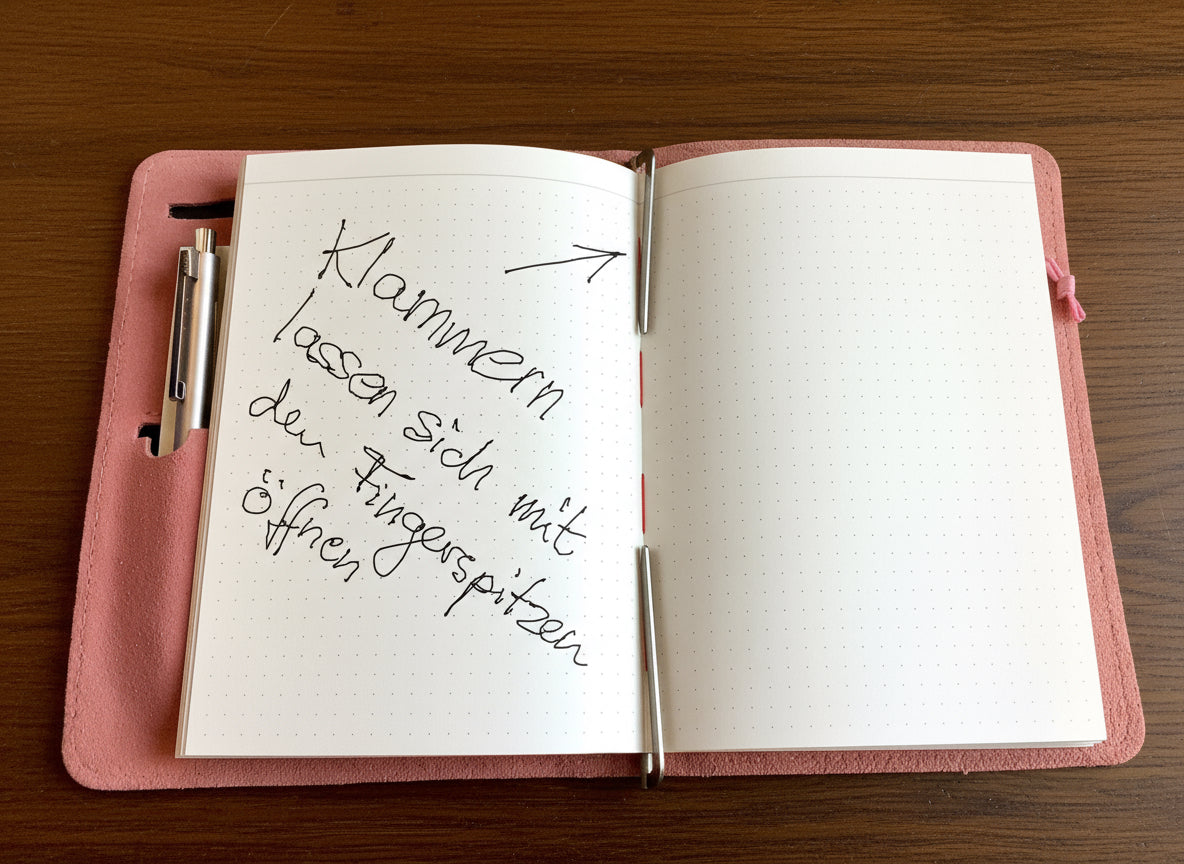 Klammern
lassen sich mit
den Fingerspitzen
öffnen